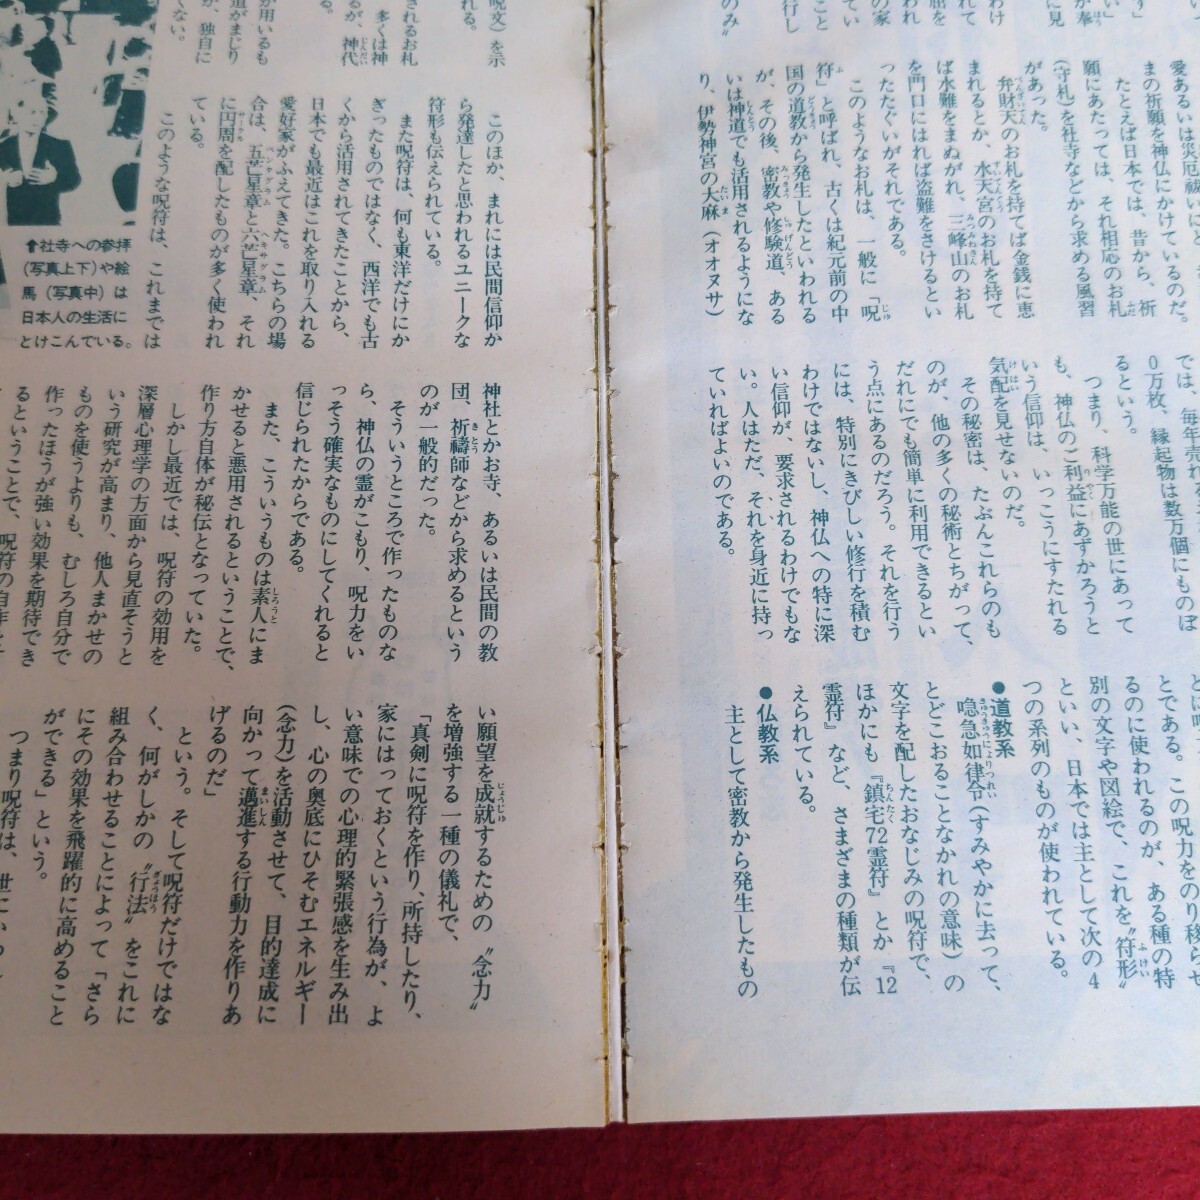 愛あるいは災厄祓い
まの祈願を神仏にかけているのだ。
たとえば日本では、昔から、祈
願にあたっては、それ相応のお札
(守札)を社寺などから求める風習
があった。
弁財天のお札を持てば金銭に恵
まれるとか、水天宮のお札を持て
ば水難をまぬがれ、三峰山のお札
を門口にはれば盗難をさけるとい
ったたぐいがそれである。
このようなお札は、一般に「呪
符」と呼ばれ、古くは紀元前の中
国の道教から発生したといわれる
が、その後、密教や修験道、ある
いは神道でも活用されるようにな
り、伊勢神宮の大麻(オオヌサ)
では、毎年売れ
0万枚、縁起物は数万個にものぼ
るという。
つまり、科学万能の世にあって
も、神仏のご利益にあずかろうと
いう信仰は、いっこうにすたれる
気配を見せないのだ。
その秘密は、たぶんこれらのも
のが、他の多くの秘術とちがって、
だれにでも簡単に利用できるとい
う点にあるのだろう。それを行う
には、特別にきびしい修行を積む
わけではないし、神仏への特に深
い信仰が、要求されるわけでもな
い。人はただ、それを身近に持っ
ていればよいのである。
とである。この呪力をのり移らせ
るのに使われるのが、ある種の特
別の文字や図絵で、これを〝符形〟
といい、日本では主として次の4
つの系列のものが使われている。
●道教系
喼急如律令(すみやかに去って、
とどこおることなかれの意味)の
文字を配したおなじみの呪符で、
ほかにも『鎮宅72霊符』とか『12
霊符』など、さまざまの種類が伝
えられている。
●仏教系
主として密教から発生したもの
呪文)を示
れる。
されるお札
多くは神
るが、神代
が用いるも
道がまじり
が、独自に
くない。
このほか、まれには民間信仰か
ら発達したと思われるユニークな
符形も伝えられている。
また呪符は、何も東洋だけにか
ぎったものではなく、西洋でも古
くから活用されてきたことから、
日本でも最近はこれを取り入れる
愛好家がふえてきた。こちらの場
合は、五芒星章と六芒星章、それ
に円周を配したものが多く使われ
ている。
このような呪符は、これまでは
⬆社寺への参拝
(写真上下)や絵
馬(写真中)は
日本人の生活に
とけこんでいる。
神社とかお寺、あるいは民間の教
団、祈禱師などから求めるという
のが一般的だった。
そういうところで作ったものな
ら、神仏の霊がこもり、呪力をい
っそう確実なものにしてくれると
信じられたからである。
また、こういうものは素人にま
かせると悪用されるということで、
作り方自体が秘伝となっていた。
しかし最近では、呪符の効用を
深層心理学の方面から見直そうと
いう研究が高まり、他人まかせの
ものを使うよりも、むしろ自分で
作ったほうが強い効果を期待でき
るということで、呪符の自作を
い願望を成就するための〝念力〟
を増強する一種の儀礼で、
「真剣に呪符を作り、所持したり、
家にはっておくという行為が、よ
い意味での心理的緊張感を生み出
し、心の奥底にひそむエネルギー
(念力)を活動させて、目的達成に
向かって邁進する行動力を作りあ
げるのだ」
という。そして呪符だけではな
く、何がしかの〝行法〟をこれに
組み合わせることによって「さら
にその効果を飛躍的に高めること
ができる」という。
つまり呪符は、世にいう